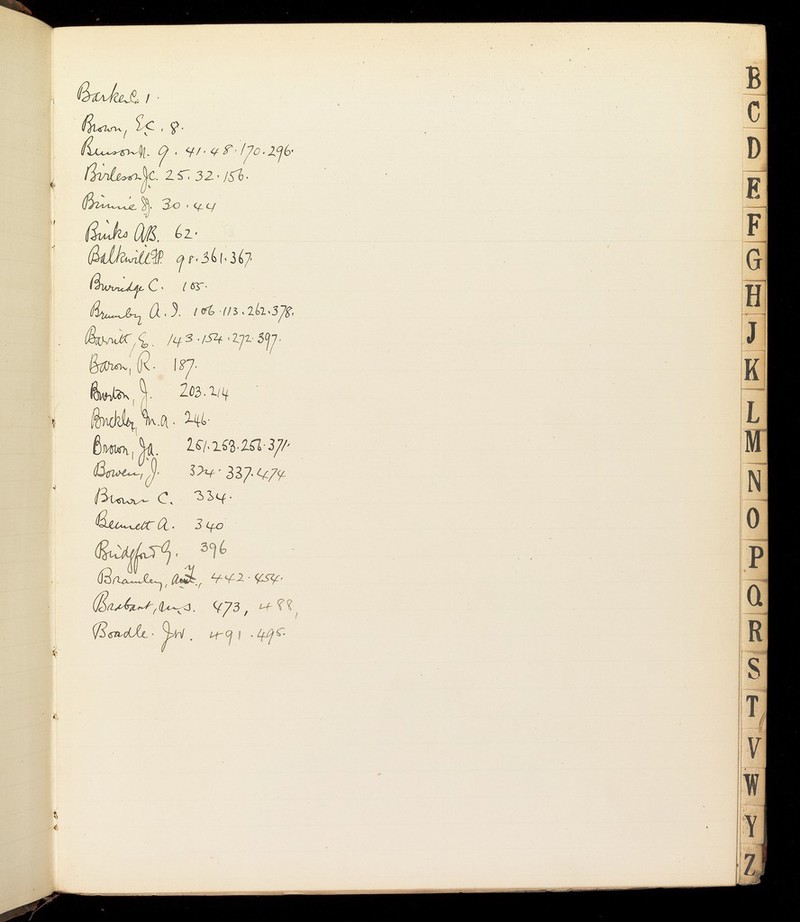 Barker C. 1.
Brown, E.C. 8.
Benson N. 9. 41. 48. 170. 296.
Birleson J.C. 25. 32. 156.
Binnie 30. 44
Binks A.B. 62.
Balkwill 98. 361. 367.
Burridge C. 105.
Brumby A. J. 106. 113. 262. 378.
Barritt, E. 143. 154. 272. 397.
Baron, R. 187.
Burton, J. 203. 214
Buckley, M.A. 246.
Brown, J.A. 251. 253. 256. 371.
Bowen, J. 324. 337. 474
Brown C. 334.
Bennett A. 340
Bridgford G. 396
Bramley, 442. 454.
Brabant, M.S. 473, 488,
Boadle. J.W. 491. 495.
B
C
D
E
F
G
H
J
K
L
M
N
O
P
Q
R
S
T
V
W
Y
Z